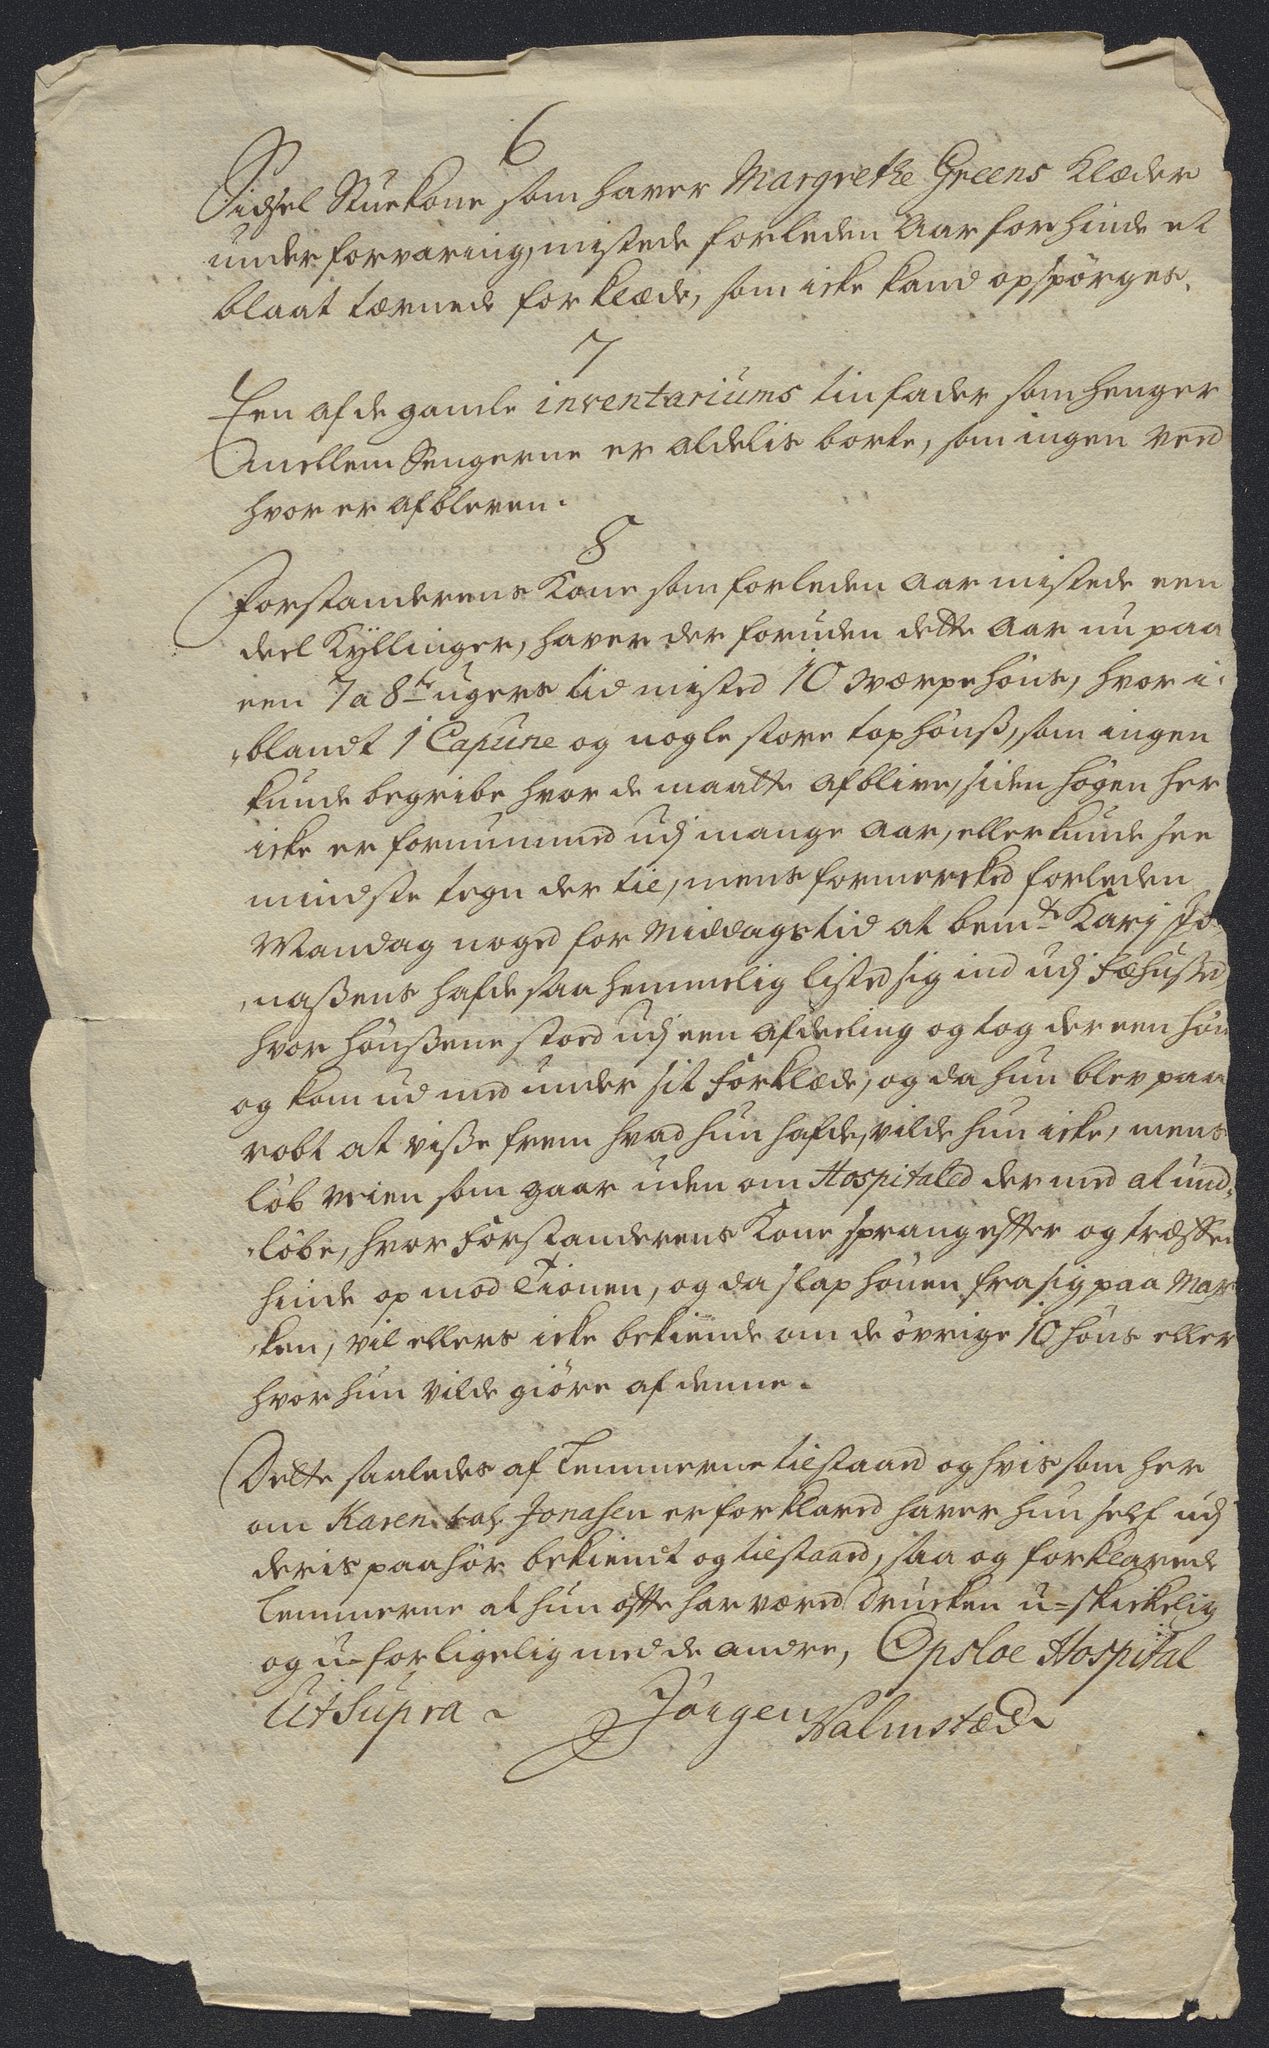 6
Sidsel Stuekone som haver Margrethe Greens Klæder
under forvaring, mistede forleden Aar for hinde et
blaat tærnede forklæde, som icke kand opspörges.
7
Een af de gamle inventariums tinfader som henger
mellem Sengerne er aldelis borte, som ingen veed
hvor er afbleven.
8
Forstanderens Kone som forleden Aar mistede een
deel Kyllinger, haver der foruden dette Aar nu paa
een 7 a 8te ugers tid misted 10 værpehöns, hvor i-
blandt 1 Capune og nogle store tophönß, som ingen
kunde begribe hvor de maatte afblive, siden högen her
icke er fornummed udj mange Aar, eller kunde see
mindste tegn der til, mens formercked forleden
Mandag noged for Middagstid at bemte Karj Jo-
naßens hafde saa hemmelig listed sig ind udj Fæhußed
hvor hönßene stoed udj een afdeeling og tog der een hön
og kom ud med under sit forklæde, og da hun blev paa
robt at viße frem hvad hun hafde, vilde hun icke, mens
löb veien som gaar uden om Hospitaled der med at und-
löbe, hvor Forstanderens Kone sprang efter og træffed
hinde op mod Tionen, og da slap hönen fra sig paa Mar-
ken, vil ellers icke bekiende om de övrige 10 höns eller
hvor hun vilde giöre af denne.
Dette saaledes af Lemmerne tilstaaed og hvis som her
om Karen Jonasen er forklared haver hun self udj
deris paahör bekiendt og tilstaaed, saa og forklarede
Lemmerne at hun ofte har væred Drucken u-skickelig
og u-forligelig med de andre, Opsloe Hospital
Ut Supra
Jörgen Halmstæd